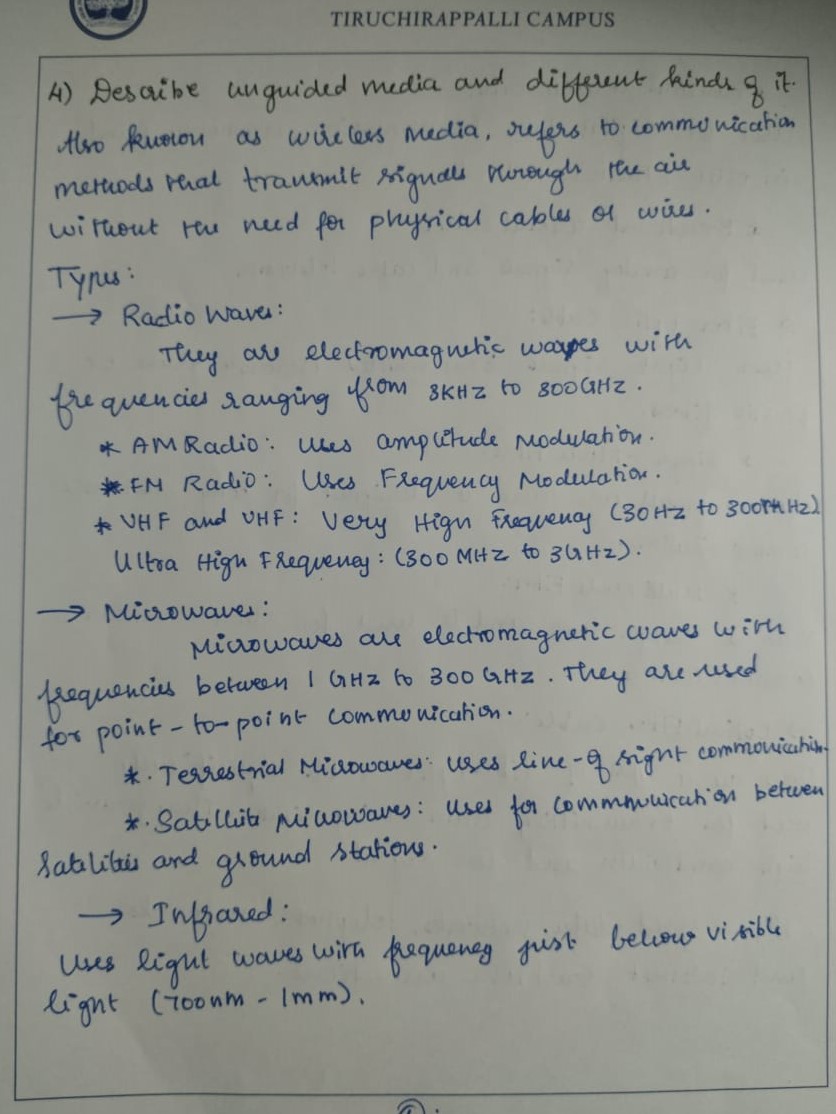 TIRUCHIRAPPALLI CAMPUS
4) Describe unguided media and different kinds of it.
Also known as wireless media, refers to communication
methods that transmit signals through the air
without the need for physical cables or wires.
Types:
→ Radio Waves:
They are electromagnetic waves with
frequencies ranging from 3KHz to 300GHz.
* AM Radio: Uses amplitude Modulation.
* FM Radio: Uses Frequency Modulation.
* VHF and UHF: Very High Frequency (30Hz to 300MHz)
Ultra High Frequency: (300 MHz to 3GHz).
→ Microwaves:
Microwaves are electromagnetic waves with
frequencies between 1 GHz to 300 GHz. They are used
for point-to-point communication.
*. Terrestrial Microwaves: uses line-of sight communication.
*. Satellite Microwaves: uses for communication between
Satellites and ground stations.
→ Infrared:
Uses light waves with frequency just below visible
light (700nm - 1mm).